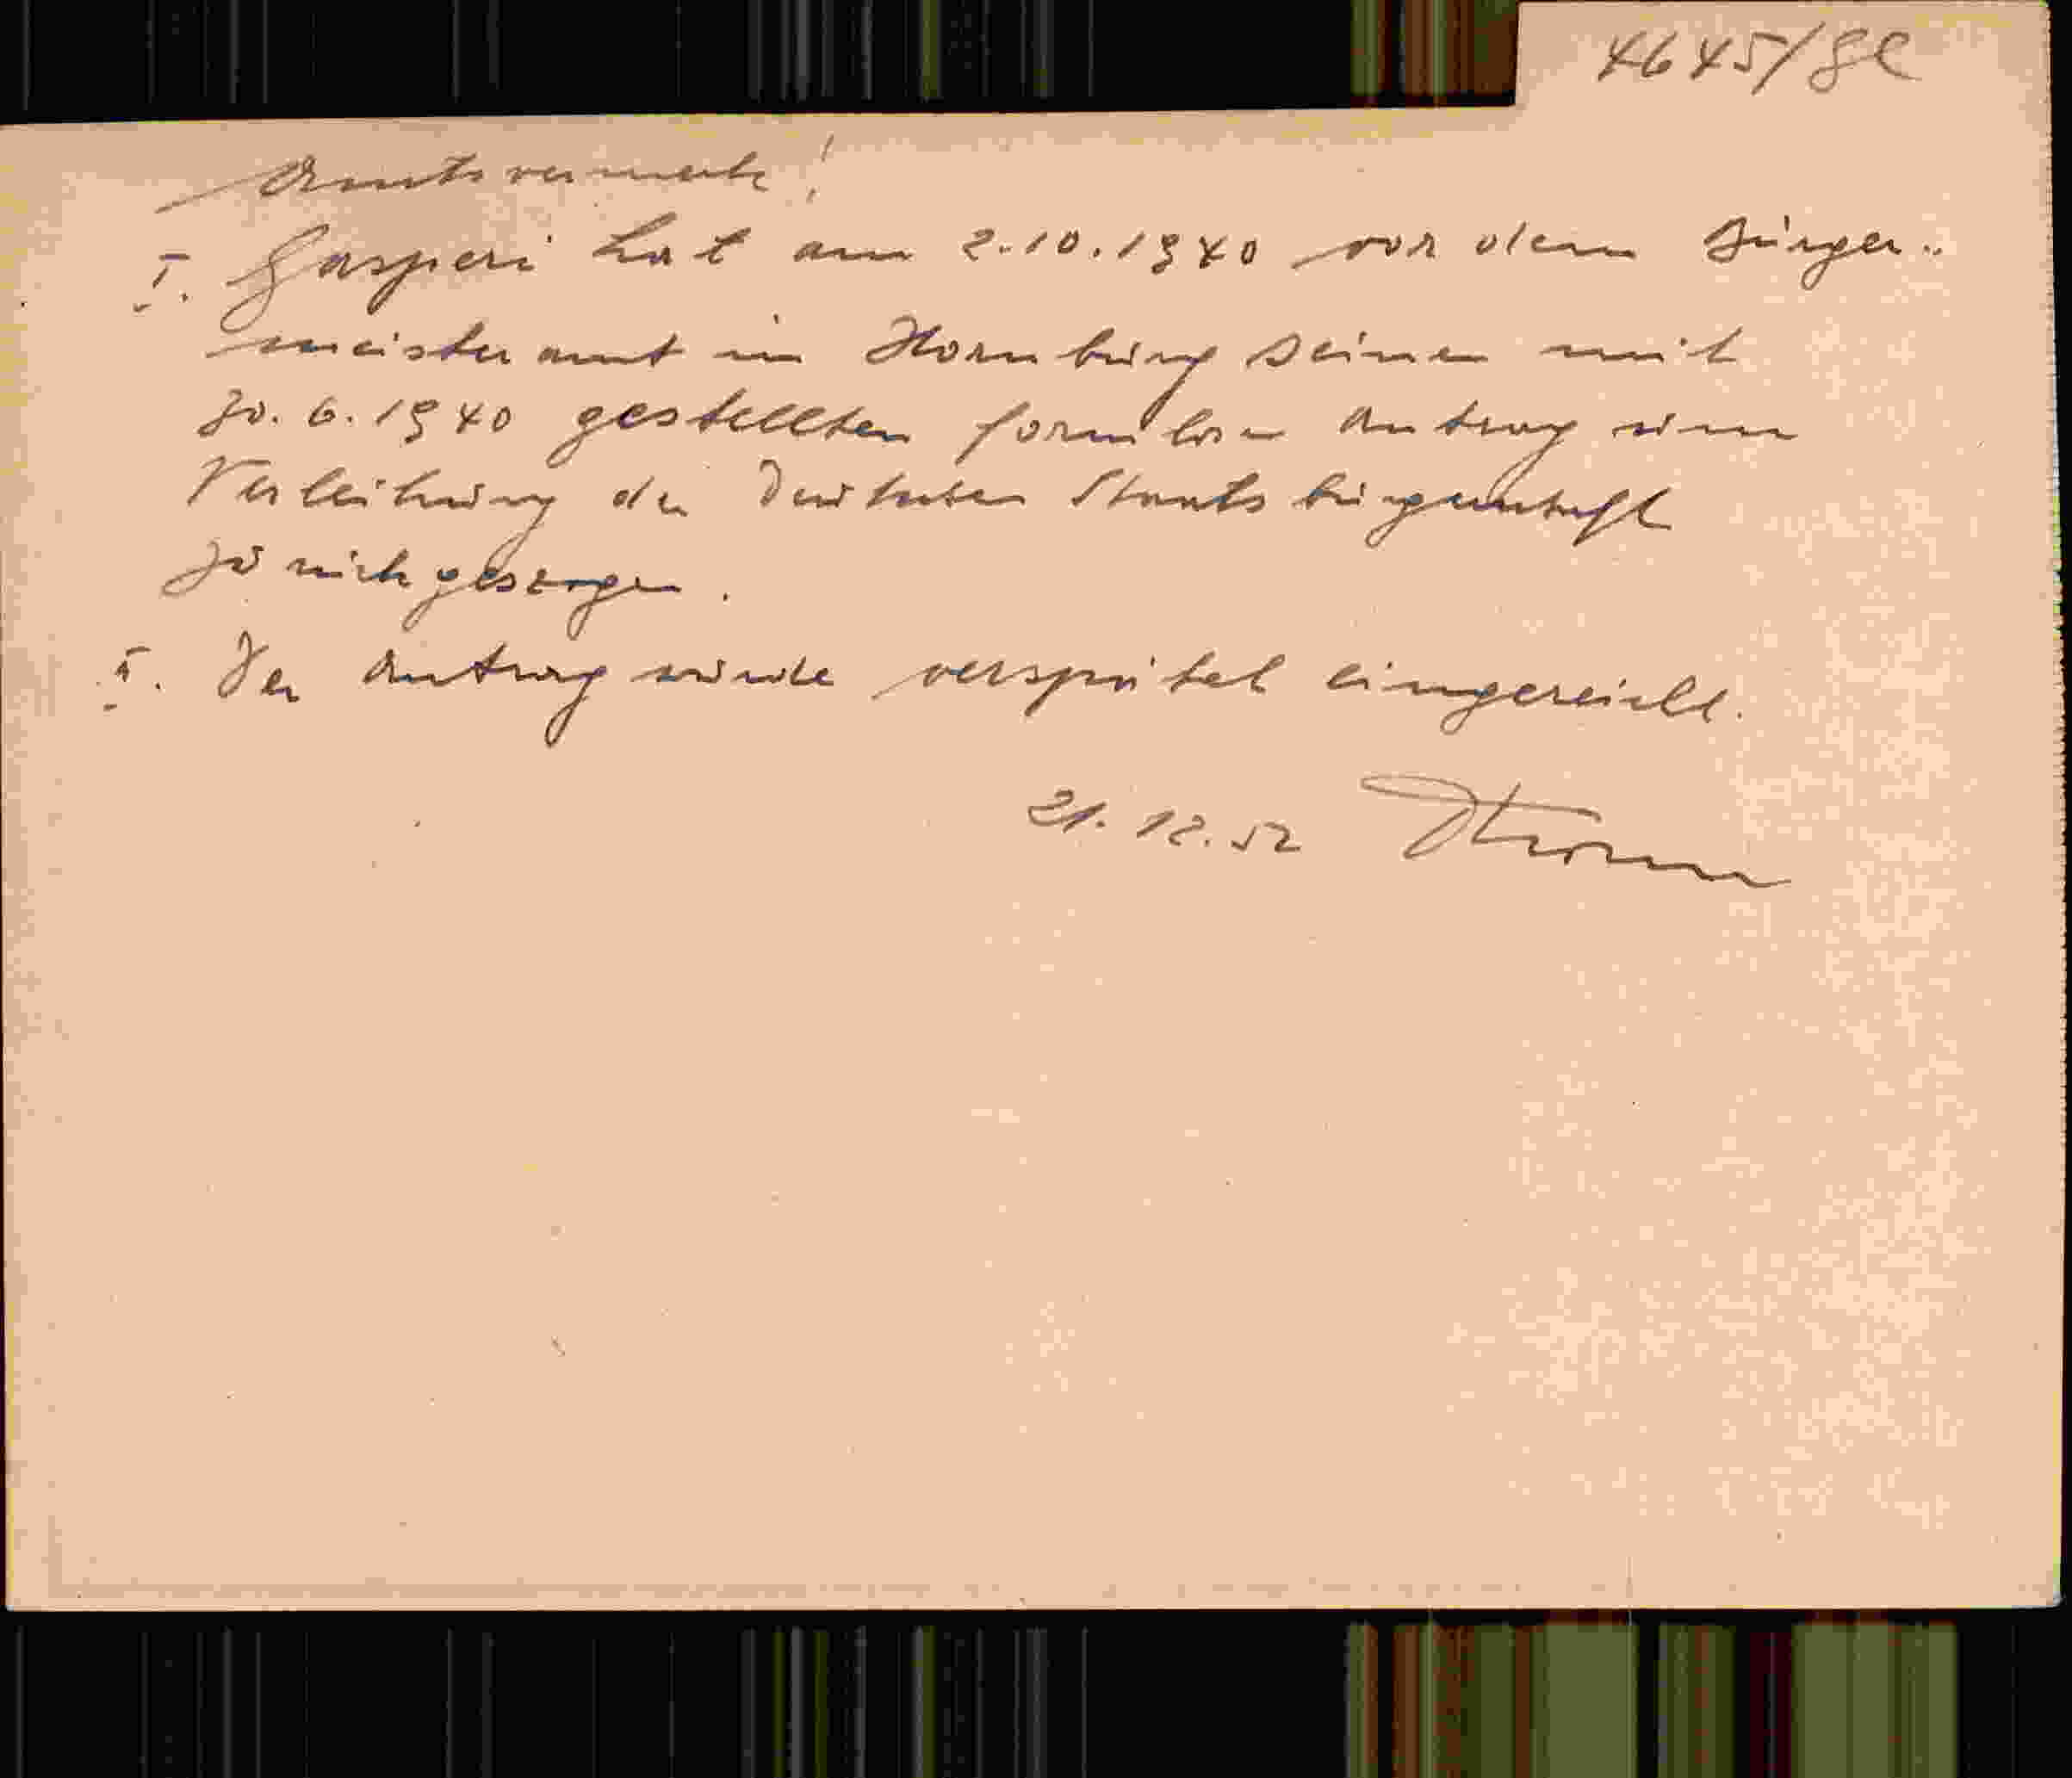 4645/Sl
Amtsvermerk!
I. Gasperi hat am 2.10.1940 vor dem Bürger-
meisteramt in Hornburg seinen mit
30.6.1940 gestellten formlosen Antrag um
Verleihung der Deutschen Staatsbürgerschaft
zurückgezogen.
II. Der Antrag wurde verspätet eingereicht.
21.12.52